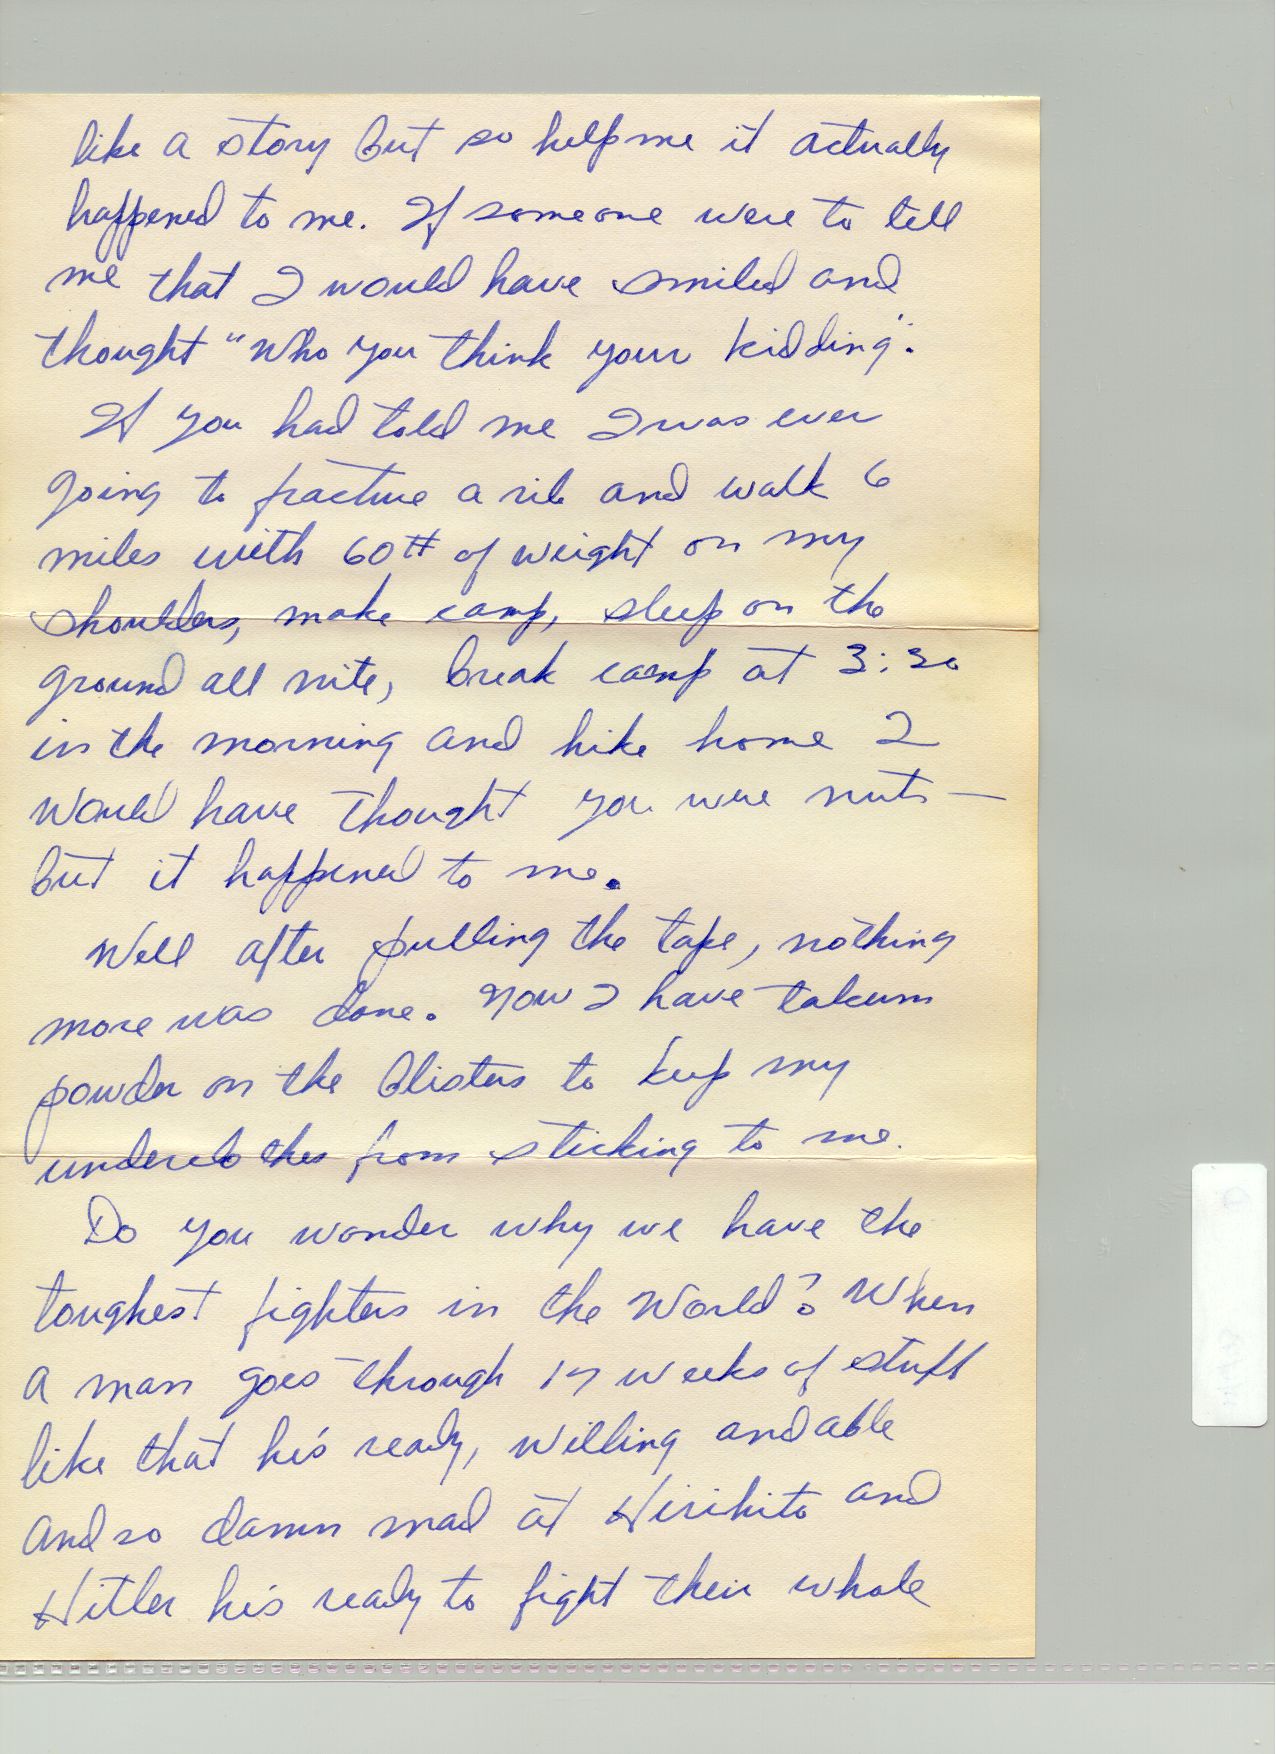 like a story but so help me it actually
happened to me. If someone were to tell
me that I would have smiled and
thought "Who you think your kidding".
If you had told me I was ever
going to fracture a rib and walk 6
miles with 60# of weight on my
shoulders, make camp, sleep on the
ground all nite, break camp at 3:30
in the morning and hike home I
would have thought you were nuts —
but it happened to me.
Well after pulling the tape, nothing
more was done. Now I have talcum
powder on the blisters to keep my
underclothes from sticking to me.
Do you wonder why we have the
toughest fighters in the World? When
a man goes through 17 weeks of stuff
like that he's ready, willing and able
and so damn mad at Hirihito and
Hitler he's ready to fight their whole